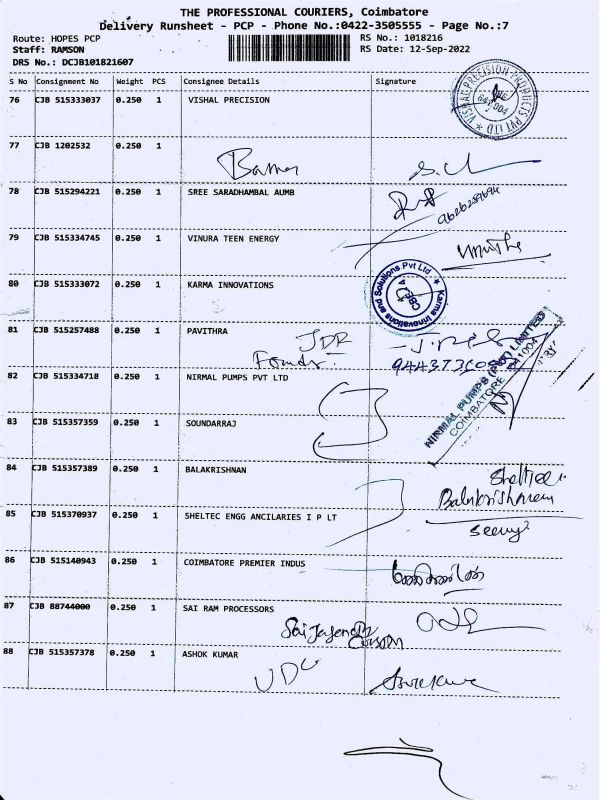 THE PROFESSIONAL COURIERS, Coimbatore
Delivery Runsheet - PCP - Phone No.:0422-3505555 - Page No.:7
Route: HOPES PCP
RS No.: 1018216
Staff: RAMSON
RS Date: 12-Sep-2022
DRS No.: DCJB101821607
S No Consignment No Weight PCS Consignee Details Signature
76 CJB 515333037 0.250 1 VISHAL PRECISION
VISHAL PRECISION PRODUCTS PVT LTD
641 004
77 CJB 1202532 0.250 1
78 CJB 515294221 0.250 1 SREE SARADHAMBAL AUMB
79 CJB 515334745 0.250 1 VINURA TEEN ENERGY
80 CJB 515333072 0.250 1 KARMA INNOVATIONS
Karma Innovations and Solutions Pvt Ltd
CBE-4
81 CJB 515257488 0.250 1 PAVITHRA
82 CJB 515334718 0.250 1 NIRMAL PUMPS PVT LTD
NIRMAL PUMPS (PVT) LIMITED
COIMBATORE
83 CJB 515357359 0.250 1 SOUNDARRAJ
84 CJB 515357389 0.250 1 BALAKRISHNAN
Balakrishnan
85 CJB 515370937 0.250 1 SHELTEC ENGG ANCILARIES I P LT
86 CJB 515140943 0.250 1 COIMBATORE PREMIER INDUS
87 CJB 88744000 0.250 1 SAI RAM PROCESSORS
88 CJB 515357378 0.250 1 ASHOK KUMAR